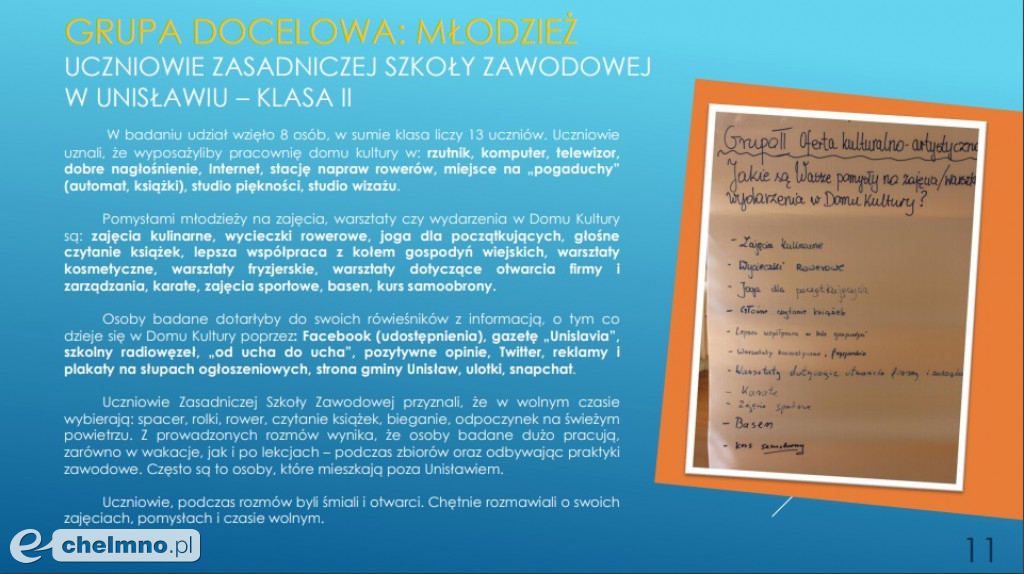 GRUPA DOCELOWA: MŁODZIEŻ
UCZNIOWIE ZASADNICZEJ SZKOŁY ZAWODOWEJ
W UNISŁAWIU – KLASA II
W badaniu udział wzięło 8 osób, w sumie klasa liczy 13 uczniów. Uczniowie
uznali, że wyposażyliby pracownię domu kultury w: rzutnik, komputer, telewizor,
dobre nagłośnienie, Internet, stację napraw rowerów, miejsce na „pogaduchy"
(automat, książki), studio piękności, studio wizażu.
Pomysłami młodzieży na zajęcia, warsztaty czy wydarzenia w Domu Kultury
są: zajęcia kulinarne, wycieczki rowerowe, joga dla początkujących, głośne
czytanie książek, lepsza współpraca z kołem gospodyń wiejskich, warsztaty
kosmetyczne, warsztaty fryzjerskie, warsztaty dotyczące otwarcia firmy i
zarządzania, karate, zajęcia sportowe, basen, kurs samoobrony.
Osoby badane dotarłyby do swoich rówieśników z informacją, o tym co
dzieje się w Domu Kultury poprzez: Facebook (udostępnienia), gazetę „Unislavia",
szkolny radiowęzeł, „od ucha do ucha", pozytywne opinie, Twitter, reklamy i
plakaty na słupach ogłoszeniowych, strona gminy Unisław, ulotki, snapchat.
Uczniowie Zasadniczej Szkoły Zawodowej przyznali, że w wolnym czasie
wybierają: spacer, rolki, rower, czytanie książek, bieganie, odpoczynek na świeżym
powietrzu. Z prowadzonych rozmów wynika, że osoby badane dużo pracują,
zarówno w wakacje, jak i po lekcjach – podczas zbiorów oraz odbywając praktyki
zawodowe. Często są to osoby, które mieszkają poza Unisławiem.
Uczniowie, podczas rozmów byli śmiali i otwarci. Chętnie rozmawiali o swoich
zajęciach, pomysłach i czasie wolnym.
Grupa II Oferta kulturalno-artystyczna
Jakie są Wasze pomysły na zajęcia/
wydarzenia w Domu Kultury?
- Zajęcia kulinarne
- Wycieczki Rowerowe
- Joga dla początkujących
- Głośne czytanie książek
- Lepsza współpraca
- Warsztaty kosmetyczne, fryzjerskie
- Warsztaty dotyczące otwarcia firmy i
- Karate
- Zajęcia sportowe
- Basen
- kurs samoobrony
e-chelmno.pl
11